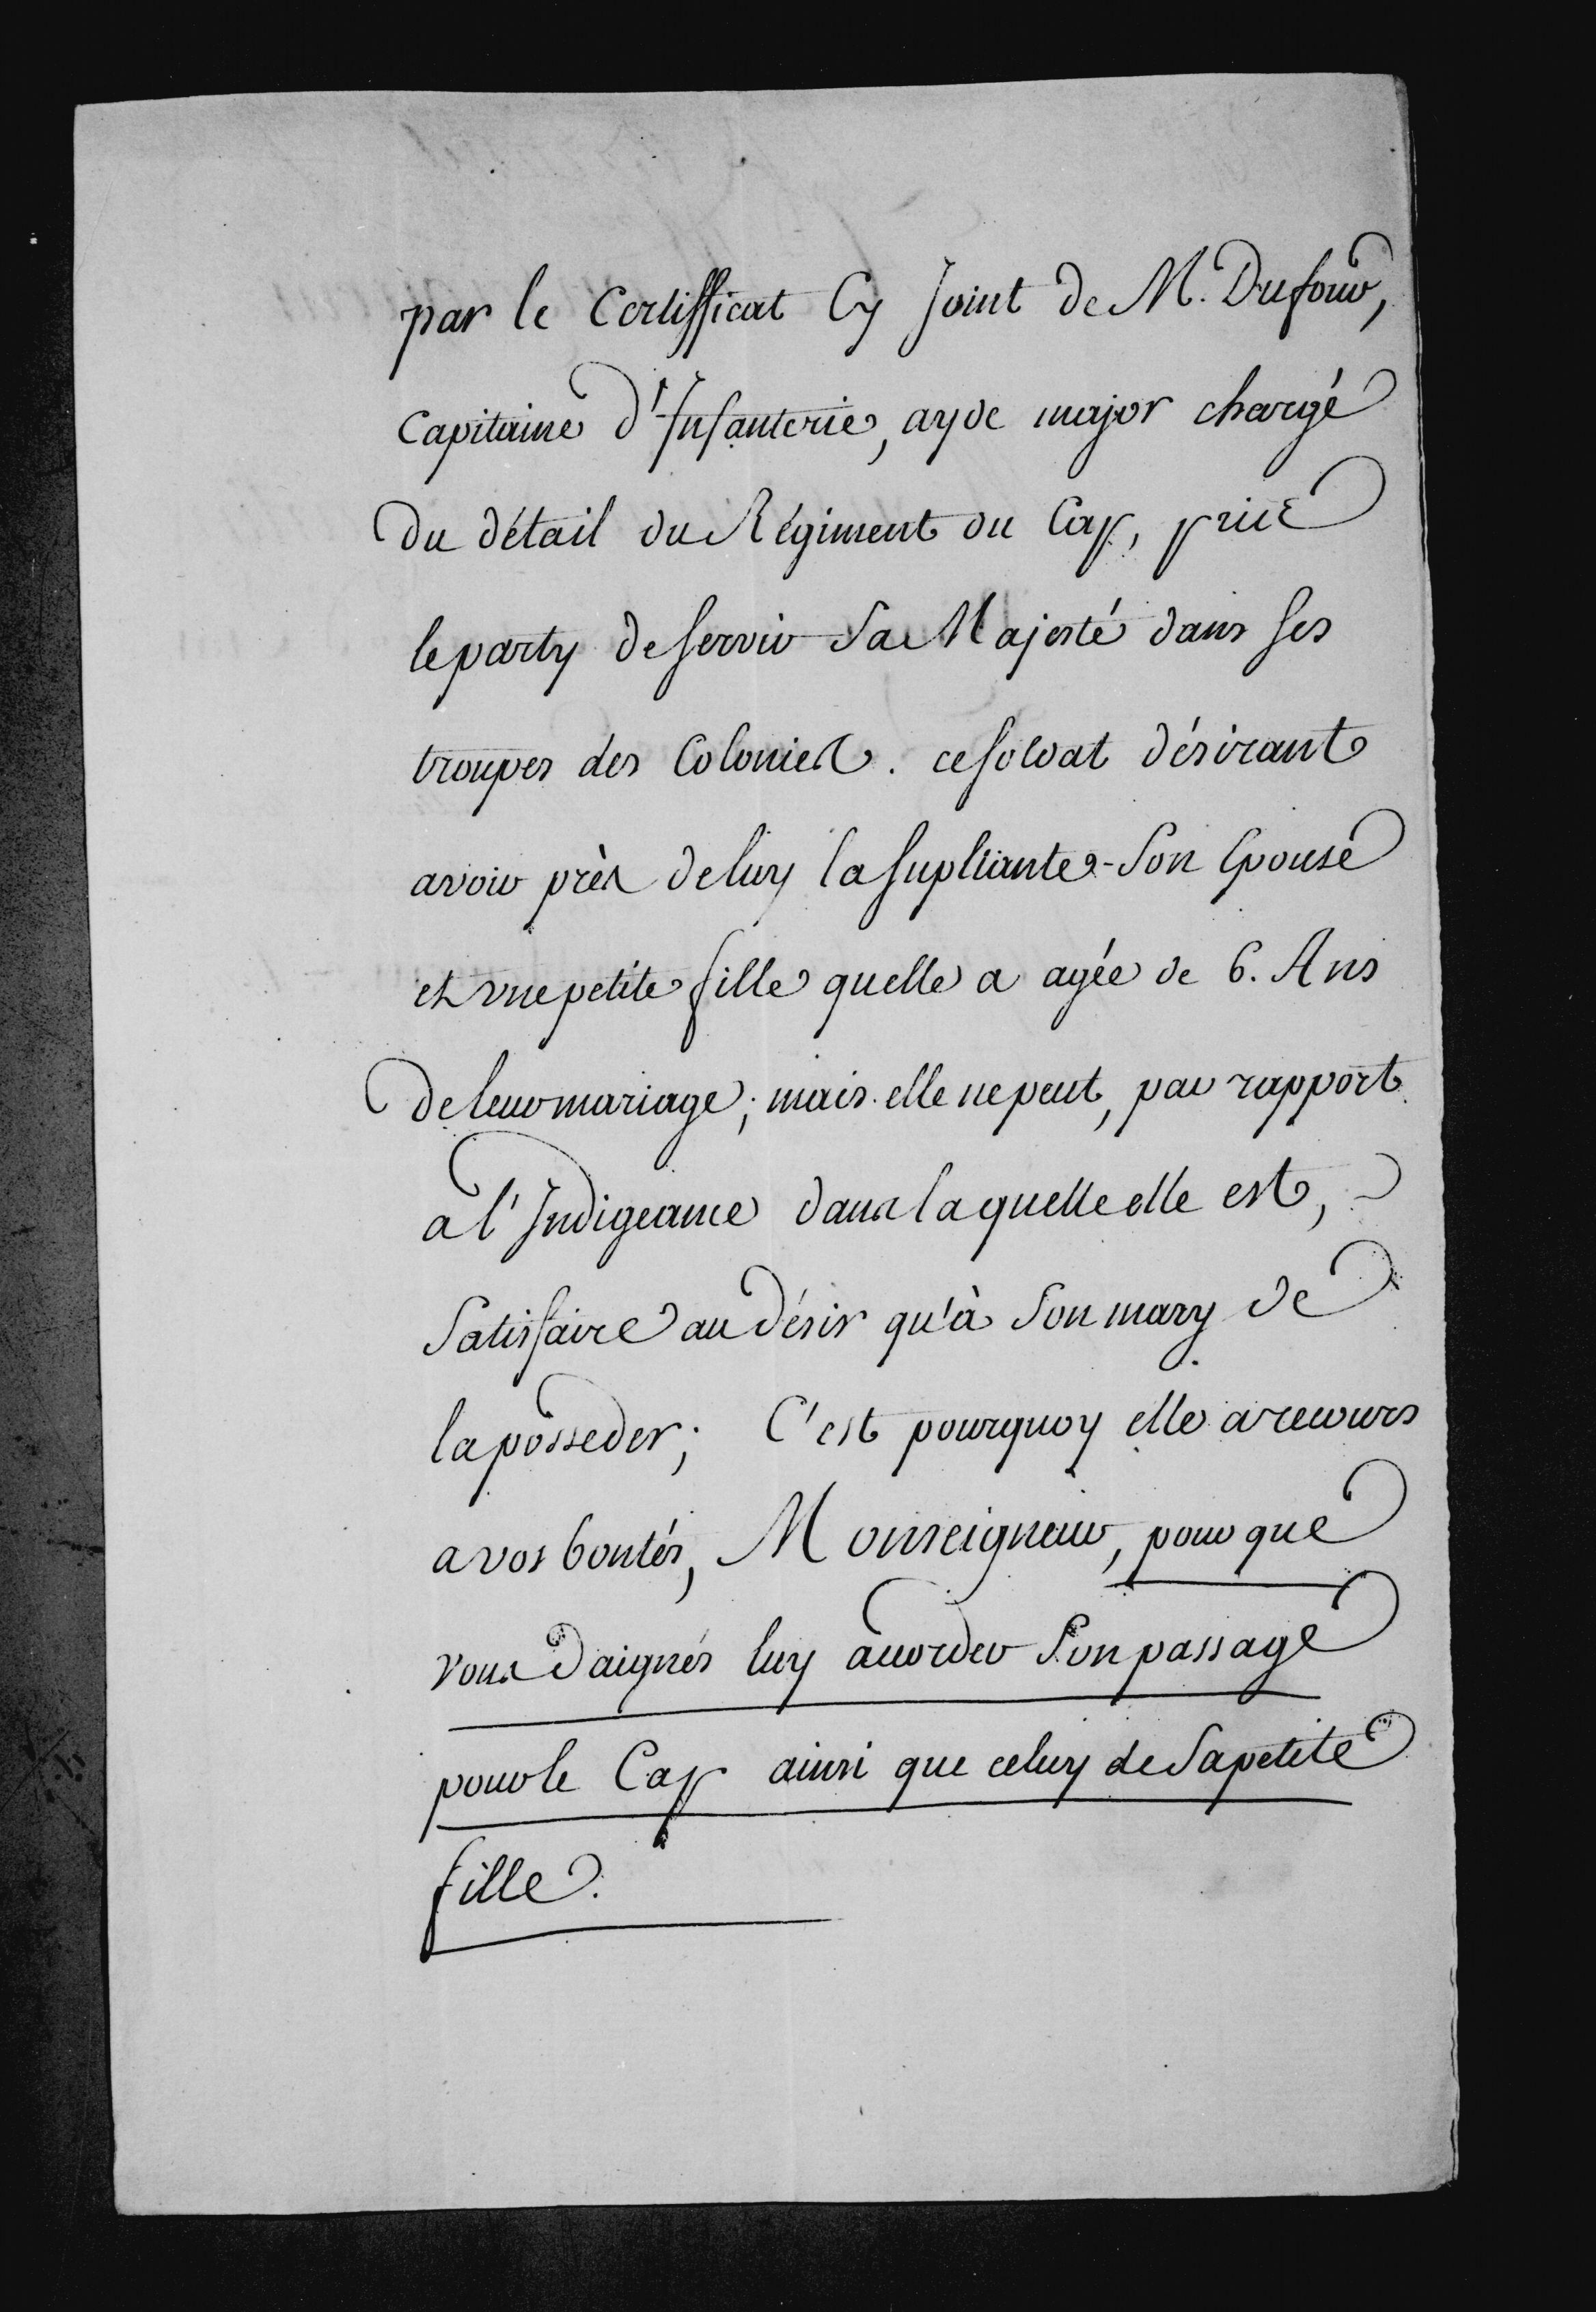 par le Certifficat Cy Joint de M. Dufour,
Capitaine d'Infanterie, ayde major chargé
Du détail du Régiment du Cap, prie
le party de servir Sa Majesté dans ses
troupes des Colonies. ce soldat désirant
avoir près de luy la supliante - Son Epouse
et une petite fille quelle a agée de 6. Ans
de leur mariage; mais elle ne peut, par rapport
a l'Indigeance dans laquelle elle est,
Satisfaire au désir qu'à Son mary de
la posseder; C'est pourquoy elle a recours
a vos bontés, Monseigneur, pour que
vous Daignés luy accorder Son passage
pour le Cap ainsi que celuy de Sa petite
fille.